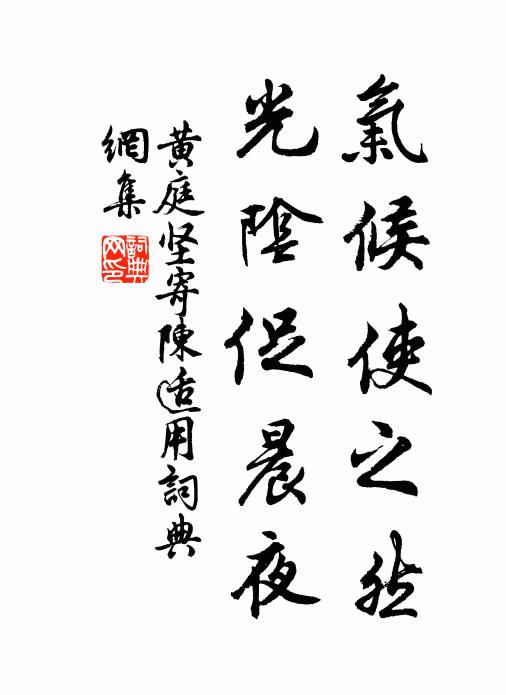 氣候使之然
光陰促晨夜
黄庭坚寄陳适用詞典
網集
詞典網印